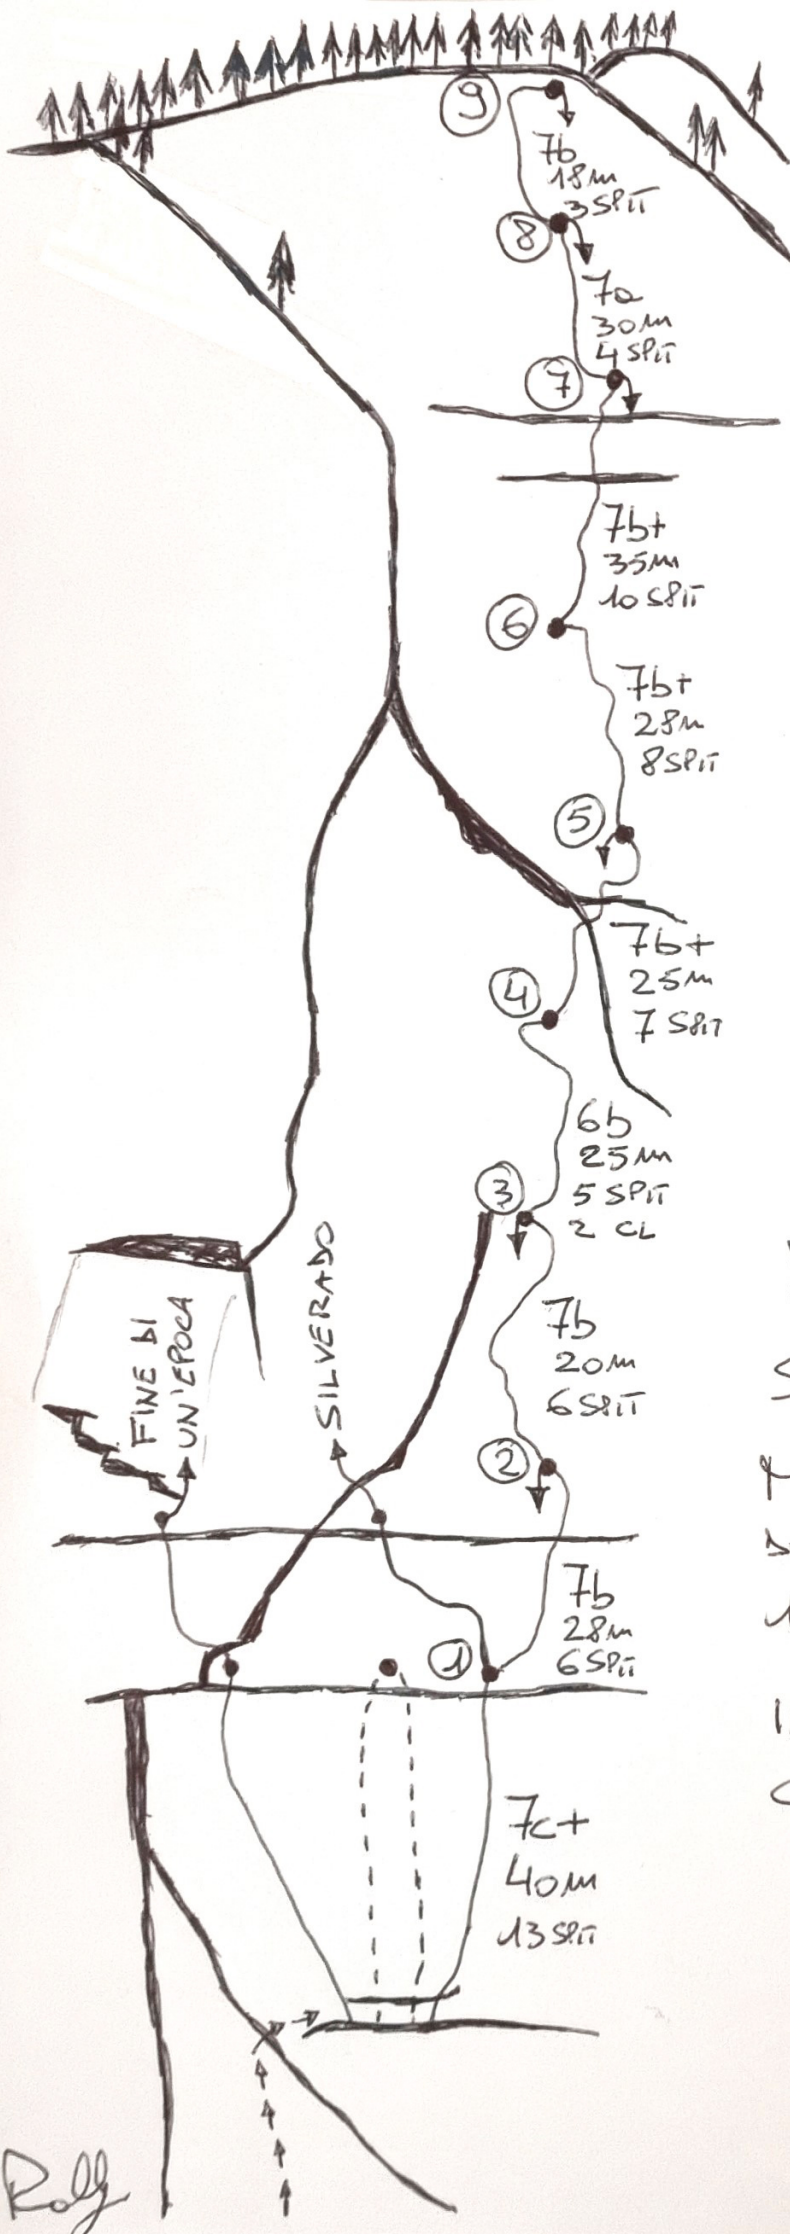 9
7b
18m
3 SPIT
8
7a
30m
4 SPIT
7
7b+
35m
10 SPIT
6
7b+
28m
8 SPIT
5
7b+
25m
7 SPIT
4
6b
25m
5 SPIT
2 CL
3
FINE DI
UN'EPOCA
SILVERADO
7b
20m
6 SPIT
2
7b
28m
6 SPIT
1
7c+
40m
13 SPIT